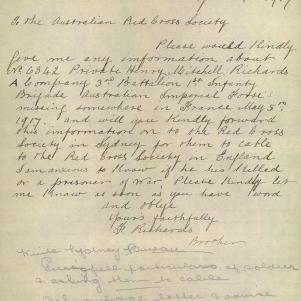 To the Australian Red Cross Society
Please would Kindly
give me any information about
No 6342 Private Henry Mitchell Richards
A Company 3rd Battalion 1st Infanty
Brigade Australian Imperial Force
missing somewhere in France May 5th
1917. and will you Kindly forward
this information on to the Red Cross
Society in Sydney for them to cable
to the Red Cross Society in England
I am anxious to Know if he his Killed
or a prisoner of War Please Kindly let
me Know as soon is you have word
and oblige
Yours faithfully
J Richards
Brother
Write Sydney Bureau
particulars of soldier
& asking them to cable
letter & advise